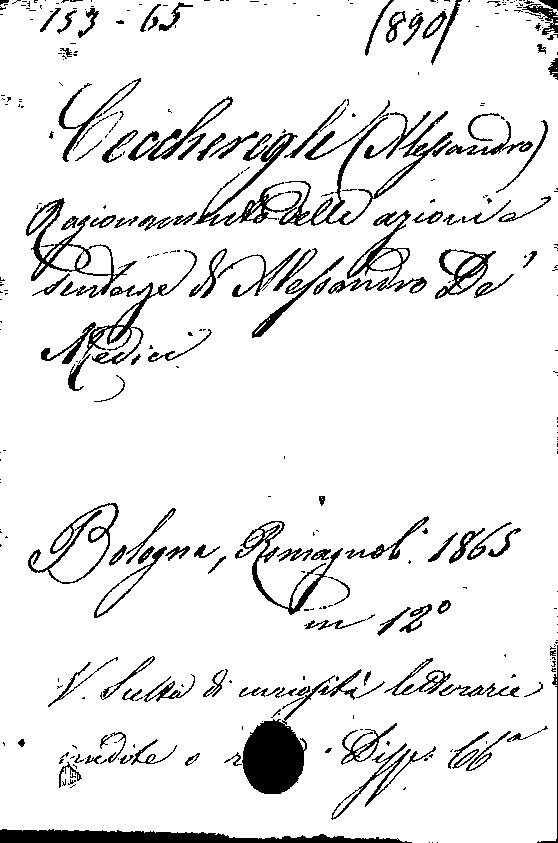 153-65 (890)
Ceccheregli (Alessandro)
Ragionamento delle azioni e
sentenze di Alessandro De'
Medici
Bologna, Romagnoli. 1865
in 12°
V. Scelta di curiosità letterarie
inedite o Disp: 66ª